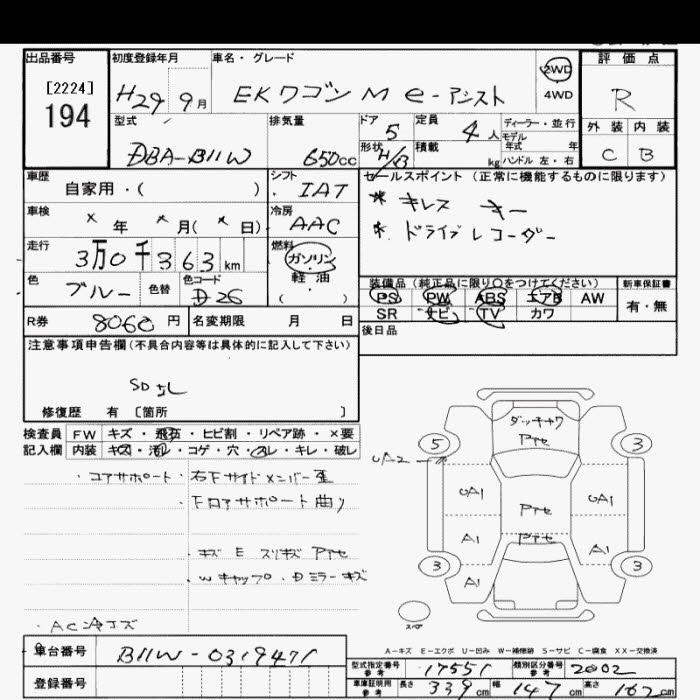 出品番号
[2224]
194
初度登録年月
H29 9月
車名・グレード
EKワゴン M e-アシスト
2WD
4WD
評価点
R
型式
DBA-B11W
排気量
650cc
ドア
5
定員
4人
ディーラー・並行
モデル
年式 年
形状
H/B
積載
kg
ハンドル 左・右
外装 内装
C B
車歴
自家用・( )
シフト
IAT
セールスポイント(正常に機能するものに限ります)
* キレス キー
* ドライブレコーダー
車検
× 年 × 月( × 日)
冷房
AAC
走行
3万0千363km
燃料
ガソリン
軽油
( )
色
ブルー
色替
色コード
D26
装備品(純正品に限り○をつけてください)
PS PW ABS エアB AW
SR ナビ TV カワ
新車保証書
有・無
R券
8060円
名変期限 月 日
後日品
注意事項申告欄(不具合内容等は具体的に記入して下さい)
修復歴 有 [箇所 ]
検査員
記入欄
FW キズ・飛石・ヒビ割・リペア跡・×要
内装 キズ・汚レ・コゲ・穴・スレ・キレ・破レ
・コアサポート・右Fサイドメンバー歪
・Fロアサポート曲り
・キズ E スリキズ
・Wキャップ・Dミラーキズ
車台番号
B11W-0319471
登録番号
5 3
UA2
UA1 UA1
A1 A1
A1
3 3
スペア
A-キズ E-エクボ U-凹み W-補修跡 S-サビ C-腐食 XX-交換済
型式指定番号
参考
17551
類別区分番号
参考
2002
車庫証明用
参考
長さ 339cm 幅 147cm 高さ 162cm